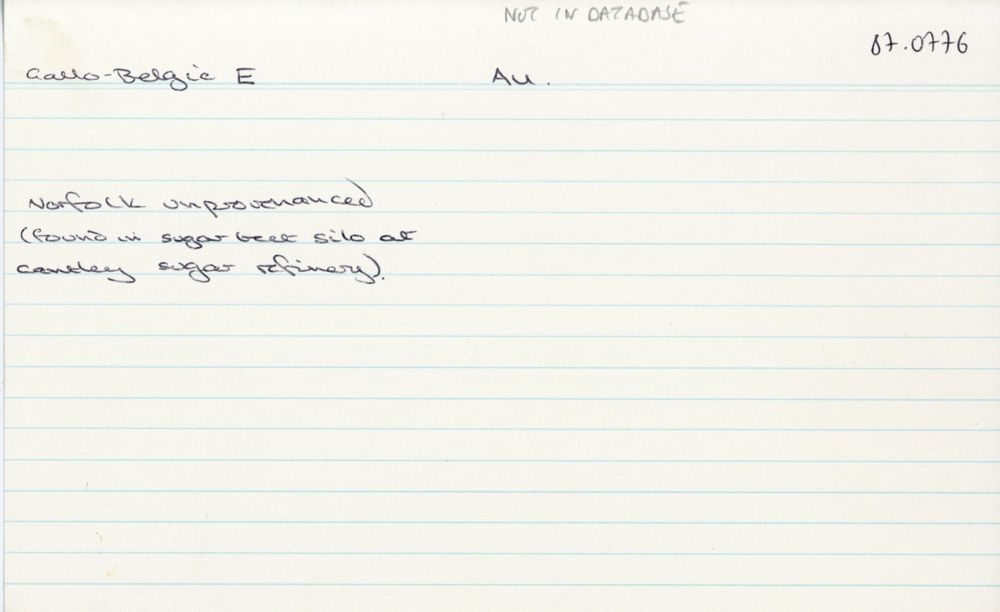 NOT IN DATABASE
87.0776
Gallo-Belgic E Au.
Norfolk unprovenanced
(found in sugar beet silo at
Cantley sugar refinery).